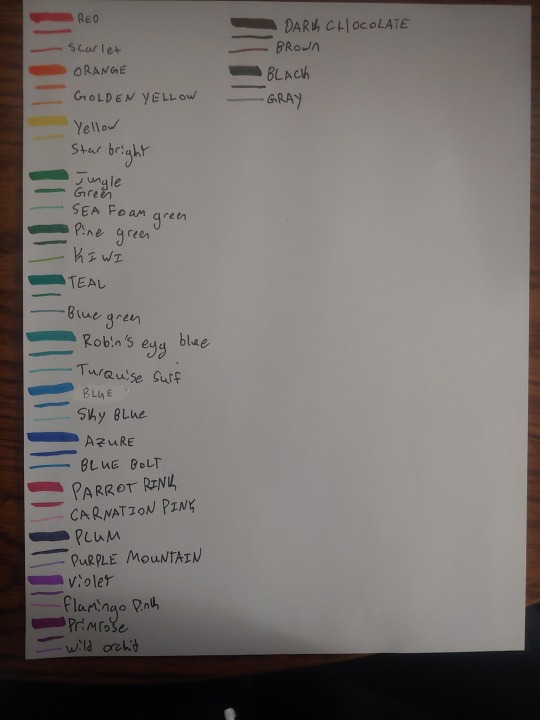 RED
Scarlet
ORANGE
GOLDEN YELLOW
Yellow
Star bright
Jungle
Green
SEA FOAM green
Pine green
KIWI
TEAL
Blue green
Robin's egg blue
Turquise Surf
BLUE
Sky BLue
AZURE
BLUE BOLT
PARROT PINK
CARNATION PINK
PLUM
PURPLE MOUNTAIN
Violet
Flamingo Pink
Primrose
Wild orchid
DARK CHOCOLATE
BROWN
BLACK
GRAY